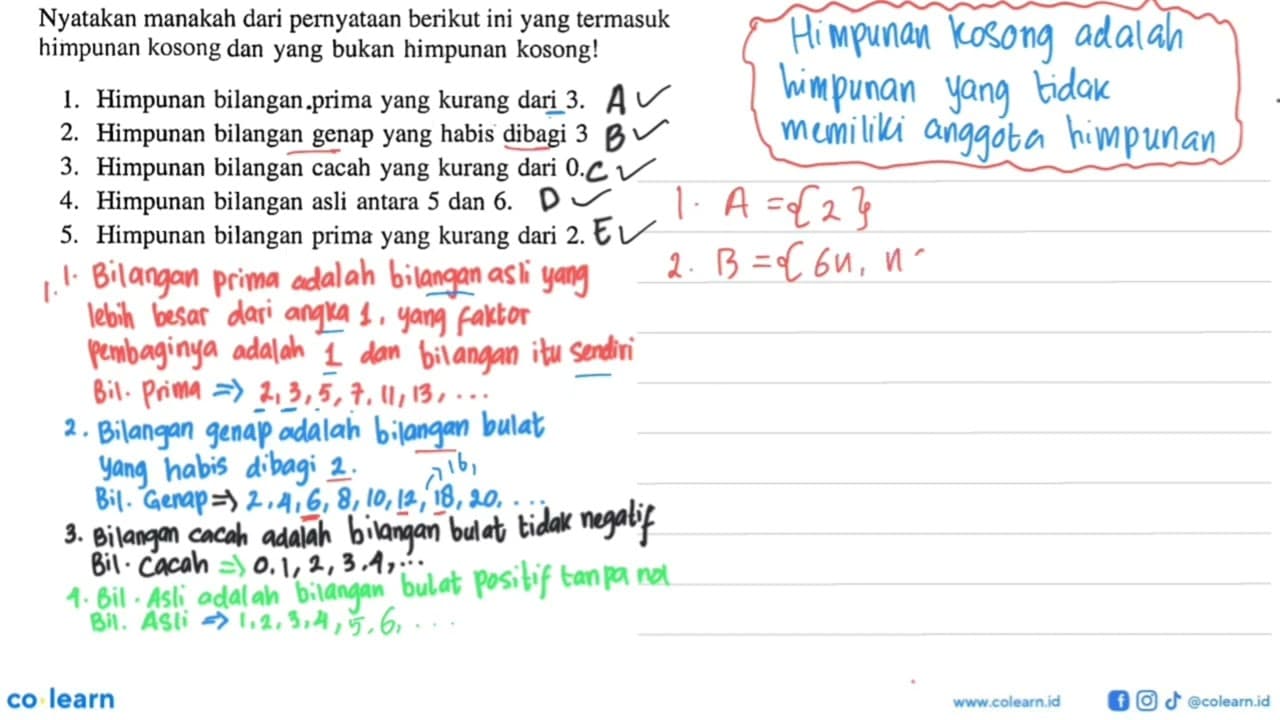 Nyatakan manakah dari pernyataan berikut ini yang termasuk
himpunan kosong dan yang bukan himpunan kosong!
1. Himpunan bilangan prima yang kurang dari 3. A ✓
2. Himpunan bilangan genap yang habis dibagi 3 B ✓
3. Himpunan bilangan cacah yang kurang dari 0. C ✓
4. Himpunan bilangan asli antara 5 dan 6. D ✓
5. Himpunan bilangan prima yang kurang dari 2. E ✓
1. 1. Bilangan prima adalah bilangan asli yang
lebih besar dari angka 1, yang faktor
pembaginya adalah 1 dan bilangan itu sendiri
Bil. Prima => 2, 3, 5, 7, 11, 13, ...
2. Bilangan genap adalah bilangan bulat
yang habis dibagi 2.
16,
Bil. Genap => 2, 4, 6, 8, 10, 12, 18, 20, ...
3. Bilangan cacah adalah bilangan bulat tidak negatif
Bil. Cacah => 0, 1, 2, 3, 4, ...
4. Bil. Asli adalah bilangan bulat positif tanpa nol
Bil. Asli => 1, 2, 3, 4, 5, 6, ...
Himpunan kosong adalah
himpunan yang tidak
memiliki anggota himpunan
1. A = {2}
2. B = {6n, n
co learn
www.colearn.id
@colearn.id